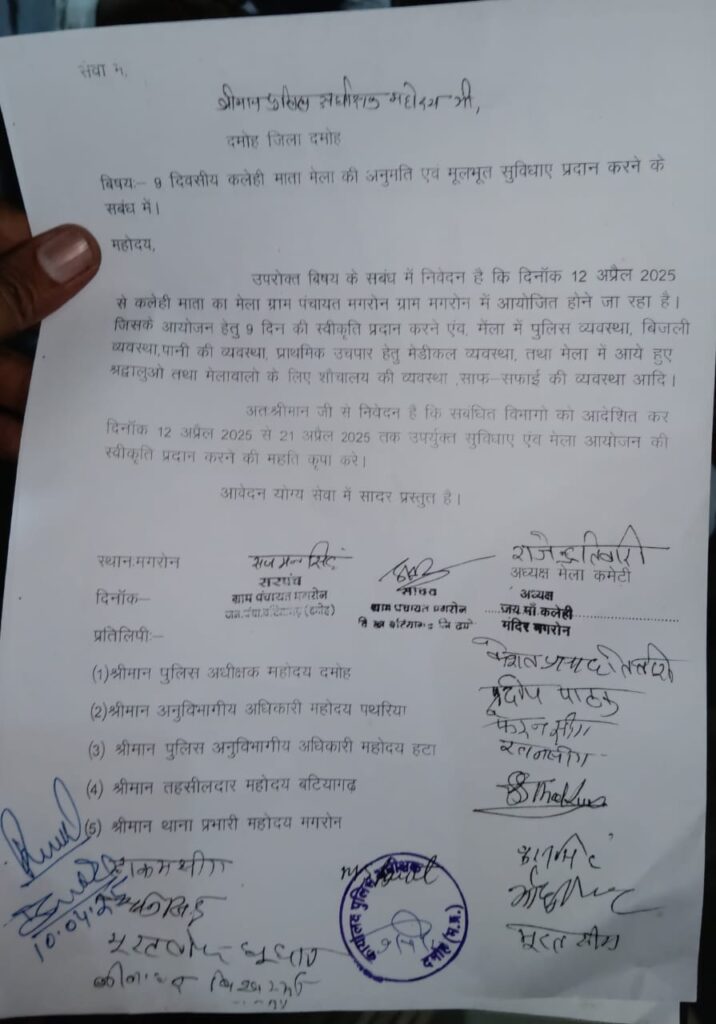 सेवा में,
श्रीमान पुलिस अधीक्षक महोदय जी,
दमोह जिला दमोह
बिषयः– 9 दिवसीय कलेही माता मेला की अनुमति एवं मूलभूत सुविधाए प्रदान करने के
सबंध में।
महोदय,
उपरोक्त बिषय के सबंध में निवेदन है कि दिनॉक 12 अप्रैल 2025
से कलेही माता का मेला ग्राम पंचायत मगरोन ग्राम मगरोन में आयोजित होने जा रहा है।
जिसके आयोजन हेतु 9 दिन की स्वीकृति प्रदान करने एंव, मेंला में पुलिस व्यवस्था, बिजली
व्यवस्था,पानी की व्यवस्था, प्राथमिक उचपार हेतु मेडीकल व्यवस्था, तथा मेला में आये हुए
श्रद्वालुओ तथा मेलावालो के लिए शौचालय की व्यवस्था ,साफ-सफाई की व्यवस्था आदि।
अतःश्रीमान जी से निवेदन है कि सबंधित विभागो को आदेशित कर
दिनॉक 12 अप्रैल 2025 से 21 अप्रैल 2025 तक उपर्युक्त सुविधाए एंव मेला आयोजन की
स्वीकृति प्रदान करने की महति कृपा करे।
आवेदन योग्य सेवा में सादर प्रस्तुत है।
स्थान.मगरोन
सरपंच
ग्राम पंचायत मगरोन
सचिव
ग्राम पंचायत मगरोन
राजेन्द्र तिवारी
अध्यक्ष मेला कमेटी
अध्यक्ष
जय माँ कलेही
मंदिर मगरोन
दिनॉक–
प्रतिलिपीः–
(1)श्रीमान पुलिस अधीक्षक महोदय दमोह
(2)श्रीमान अनुविभागीय अधिकारी महोदय पथरिया
(3) श्रीमान पुलिस अनुविभागीय अधिकारी महोदय हटा
(4) श्रीमान तहसीलदार महोदय बटियागढ़
(5) श्रीमान थाना प्रभारी महोदय मगरोन
प्रदीप पाठक
हाकम सींग
सूरत सींग
कार्यालय पुलिस अधीक्षक
दमोह (म.प्र.)
10.04.25